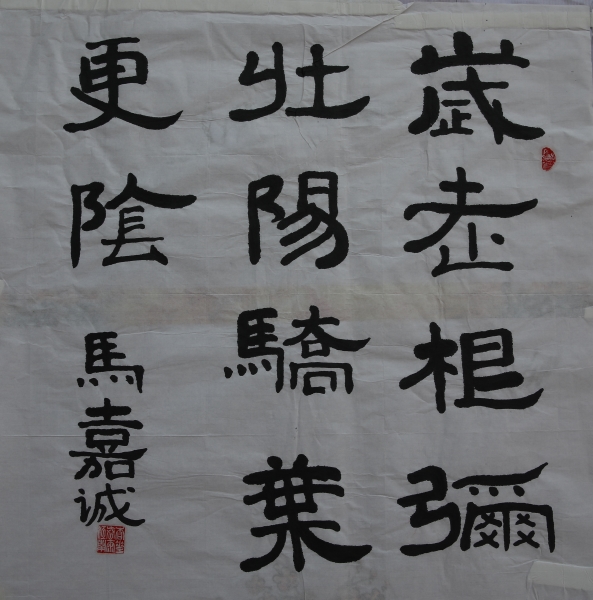 歲老根彌
壯陽驕葉
更陰
馬嘉诚